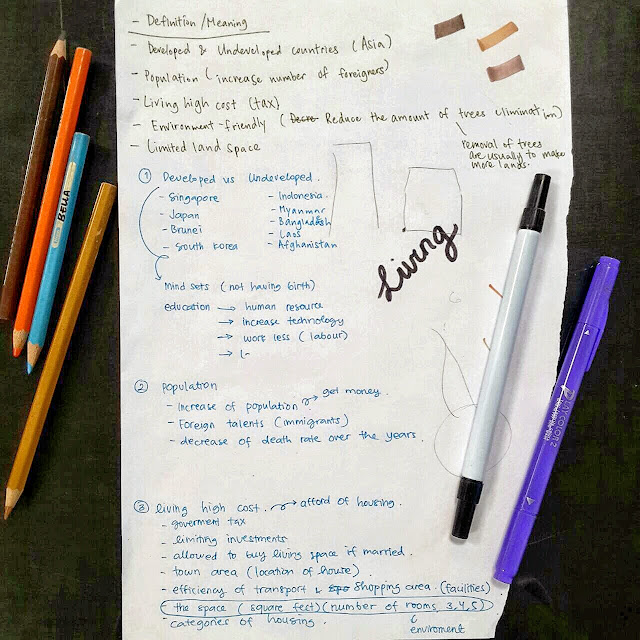 - Definition/Meaning
- Developed & Undeveloped countries (Asia)
- Population (increase number of foreigners)
- Living high cost (tax)
- Environment-friendly (Decre Reduce the amount of trees elimination)
- Limited land space
removal of trees
are usually to make
more lands.
① Developed vs Undeveloped.
- Singapore - Indonesia
- Japan - Myanmar
- Brunei - Bangladesh
- South Korea - Laos
- Afghanistan
Living
Mind sets (not having birth)
education → human resource
→ increase technology
→ work less (labour)
→
② Population
- Increase of population → get money.
- Foreign talents (immigrants)
- decrease of death rate over the years.
③ living high cost. → afford of housing.
- goverment tax
- limiting investments
- allowed to buy living space if married.
- town area (location of house)
- efficiency of transport & shopping area (facilities)
- the space (square feet) (number of rooms 3,4,5)
- categories of housing.
enviroment
BELLA
PLAYCOLOR2